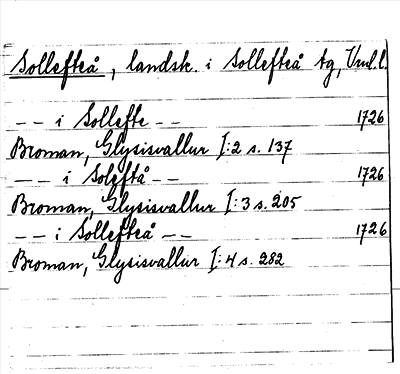 Sollefteå, landsk. i Sollefteå tg, Vnl.l.
-- i Sollefte -- 1726
Broman, Glysisvallur I:2 s. 137
-- i Soleftå -- 1726
Broman, Glysisvallur I:3 s. 205
-- i Sollefteå -- 1726
Broman, Glysisvallur I:4 s. 282